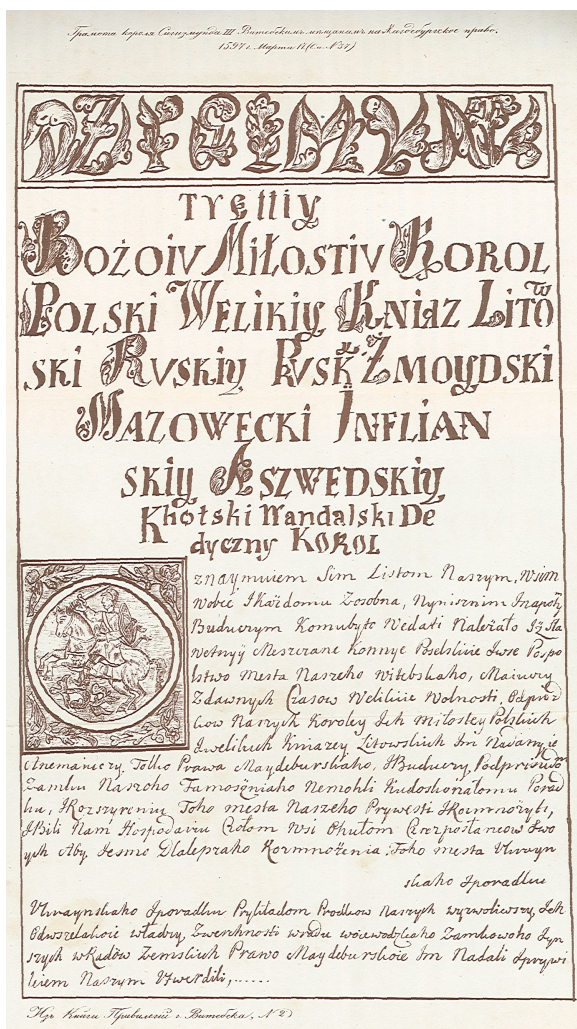 Грамота короля Сигизмунда III Витебскимъ мѣщанамъ на Магдебургское право.
1597 г. Марта 17 (См. № 37)
ZYGIMUNT
TRETIY
BOŻOIU MIŁOSTIU KOROL
POLSKI WELIKIY KNIAZ LITO
SKI RUSKIY PRUSK ŻMOYDSKI
MAZOWECKI INFLIAN
SKIY A SZWEDSKIY
Khotski Wandalski De
dyczny KOROL
znaymuiem Sim Listom Naszym, Wsim
Wobic I Każdomu Zosobna, Nynisznim Inapotŷ
Buduczym Komubyto Wedati Należało Iż Sła
wetnyŷ Meszczane Konnye Poselskie Iwse Pospo
lstwo Mesta Naszeho Witebskaho, Maiuczy
Zdawnych Czasow Welikie Wolnosti, Odprod
kow Naszych Koroley Ich miłostey Polskich
Iwelikich Kniazey Litowskich Im Nadanyie
Anemaiuczy Tolko Prawa Maydeburskaho, IBuduczy Podprisudom
Zamku Naszoho Tamoszniaho Nemohli Kudoskonałomu Porad
ku, IRozszyreniu Toho mesta Naszeho Prywesti IRozmnożyti,
IBili Nam Hospodaru Czołom Wsi Ohułom Czerezposłancow Swo
ych Aby Iesmo Dlalepszaho Rozmnożenia Toho mesta Ukrayn
skaho Iporadku
Ukraynskaho Iporadku Prykładom Prodkow Naszych wyzwoliwszy, Ich
Odwszelakoie władzy, Zwerchnosti wradu woiewodzkaho Zamkowoho Iyn
szych wradow Zemskich Prawo Maydeburskoie Im Nadali Iprywi
leiem Naszym Utwerdili,......
Изъ Книги Привилегiй г. Витебска, № 2)